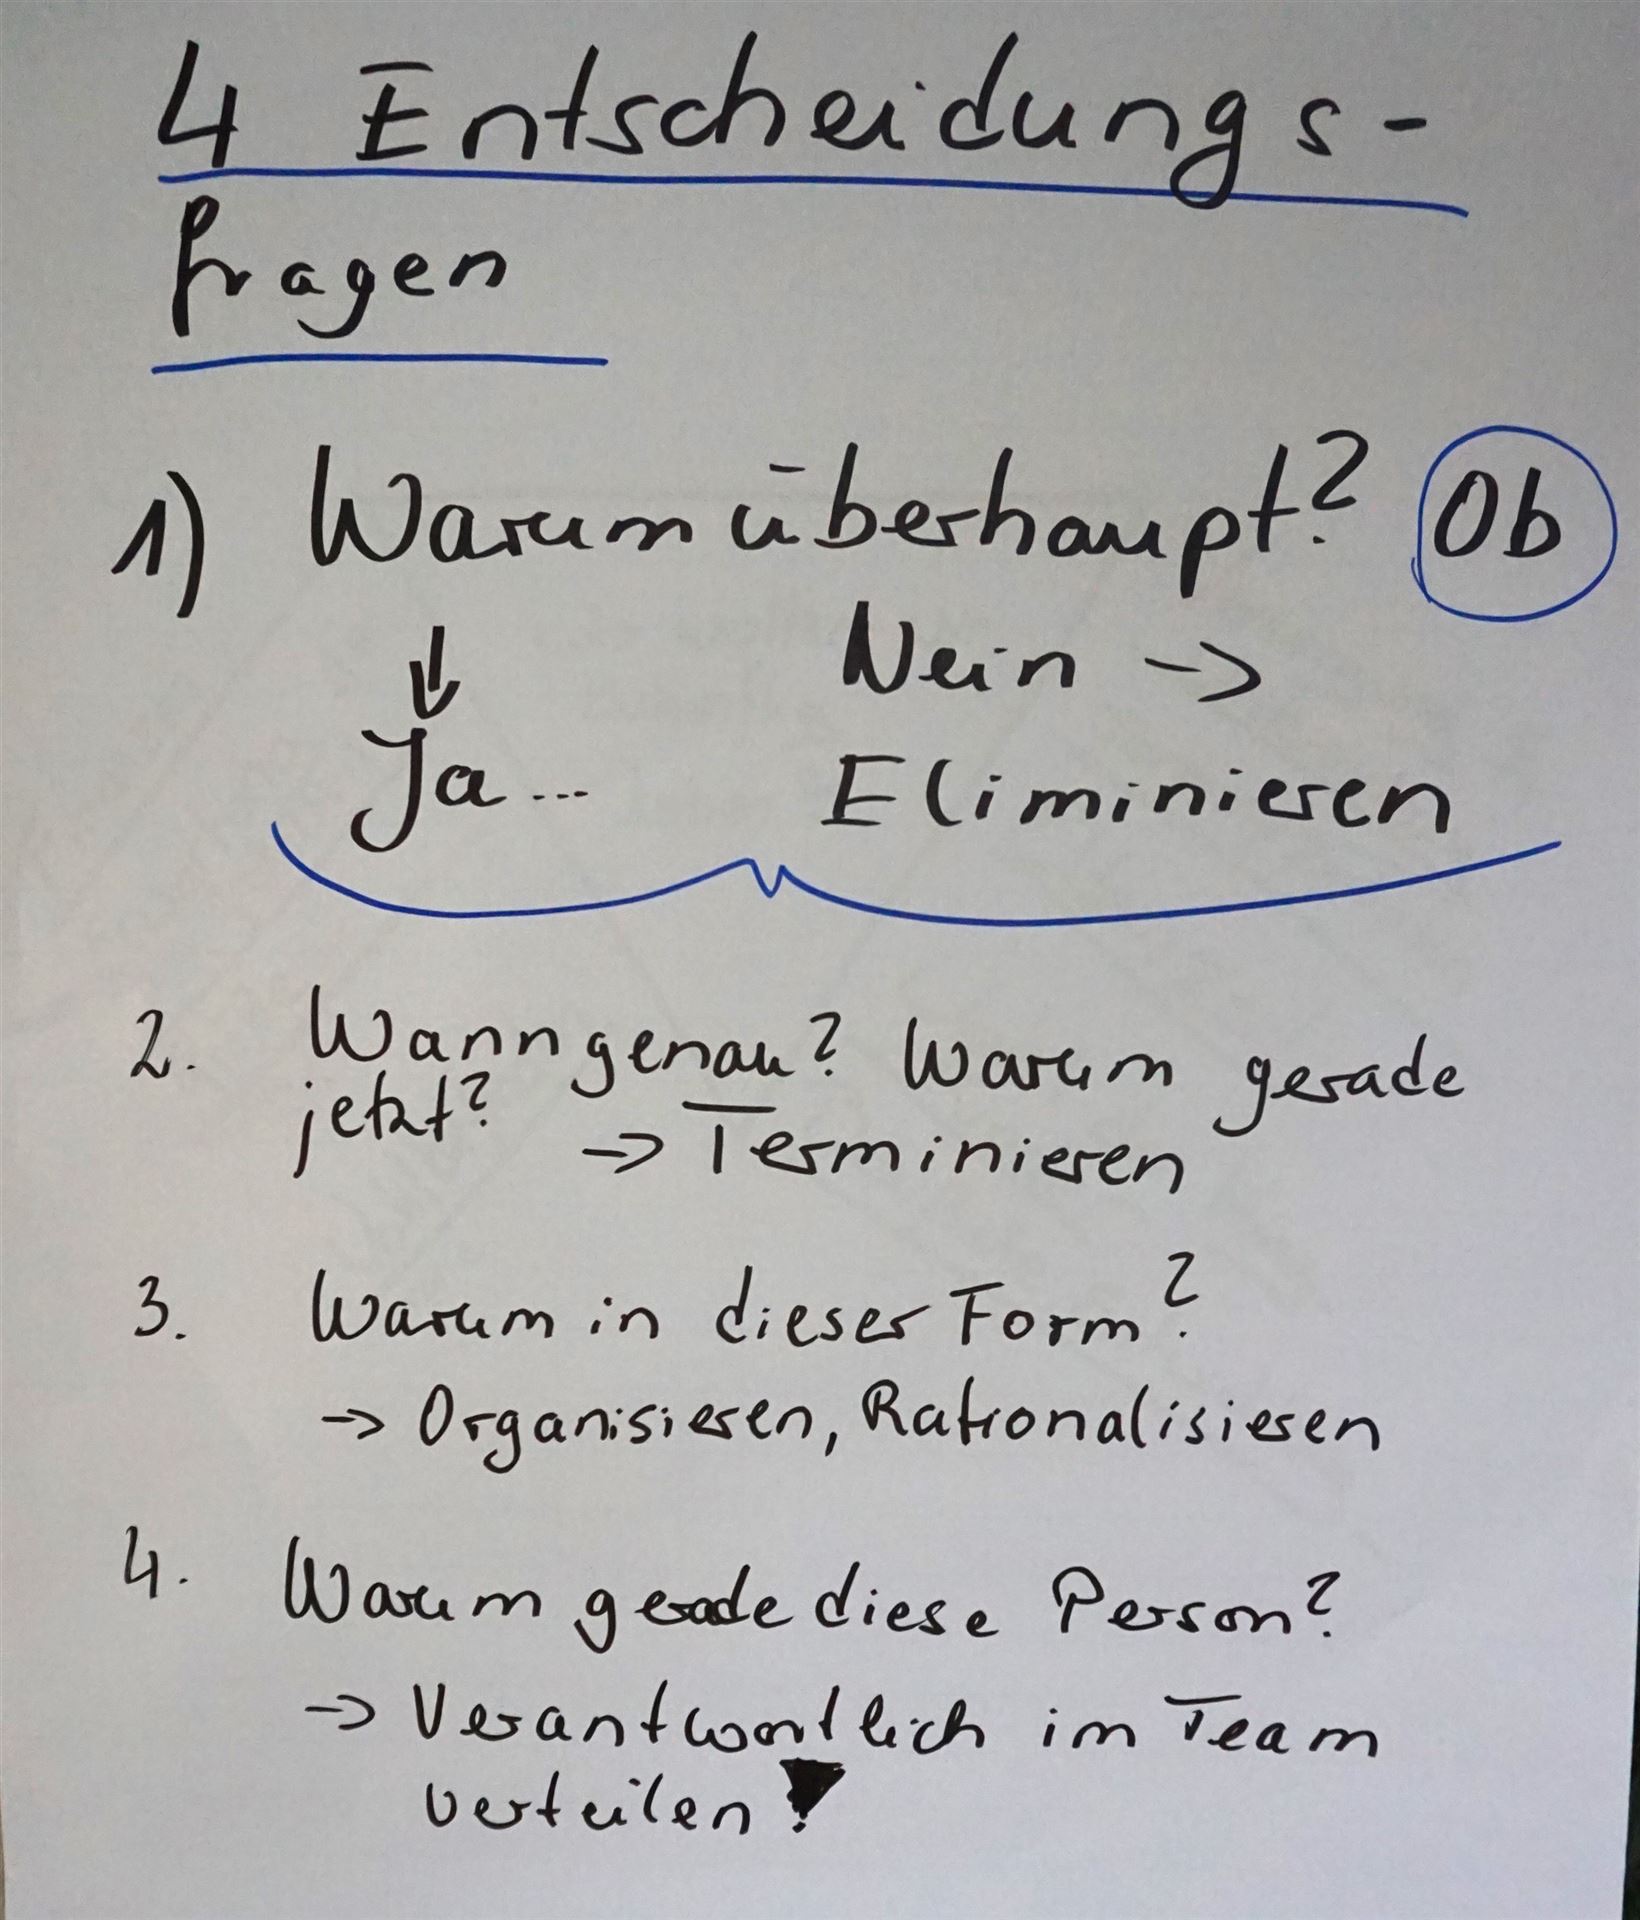 4 Entscheidungs-
fragen
1) Warum überhaupt? Ob
Nein ->
Ja... Eliminieren
2. Wann genau? Warum gerade
jetzt? -> Terminieren
3. Warum in dieser Form?
-> Organisieren, Rationalisieren
4. Warum gerade diese Person?
-> Verantwortlich im Team
verteilen!